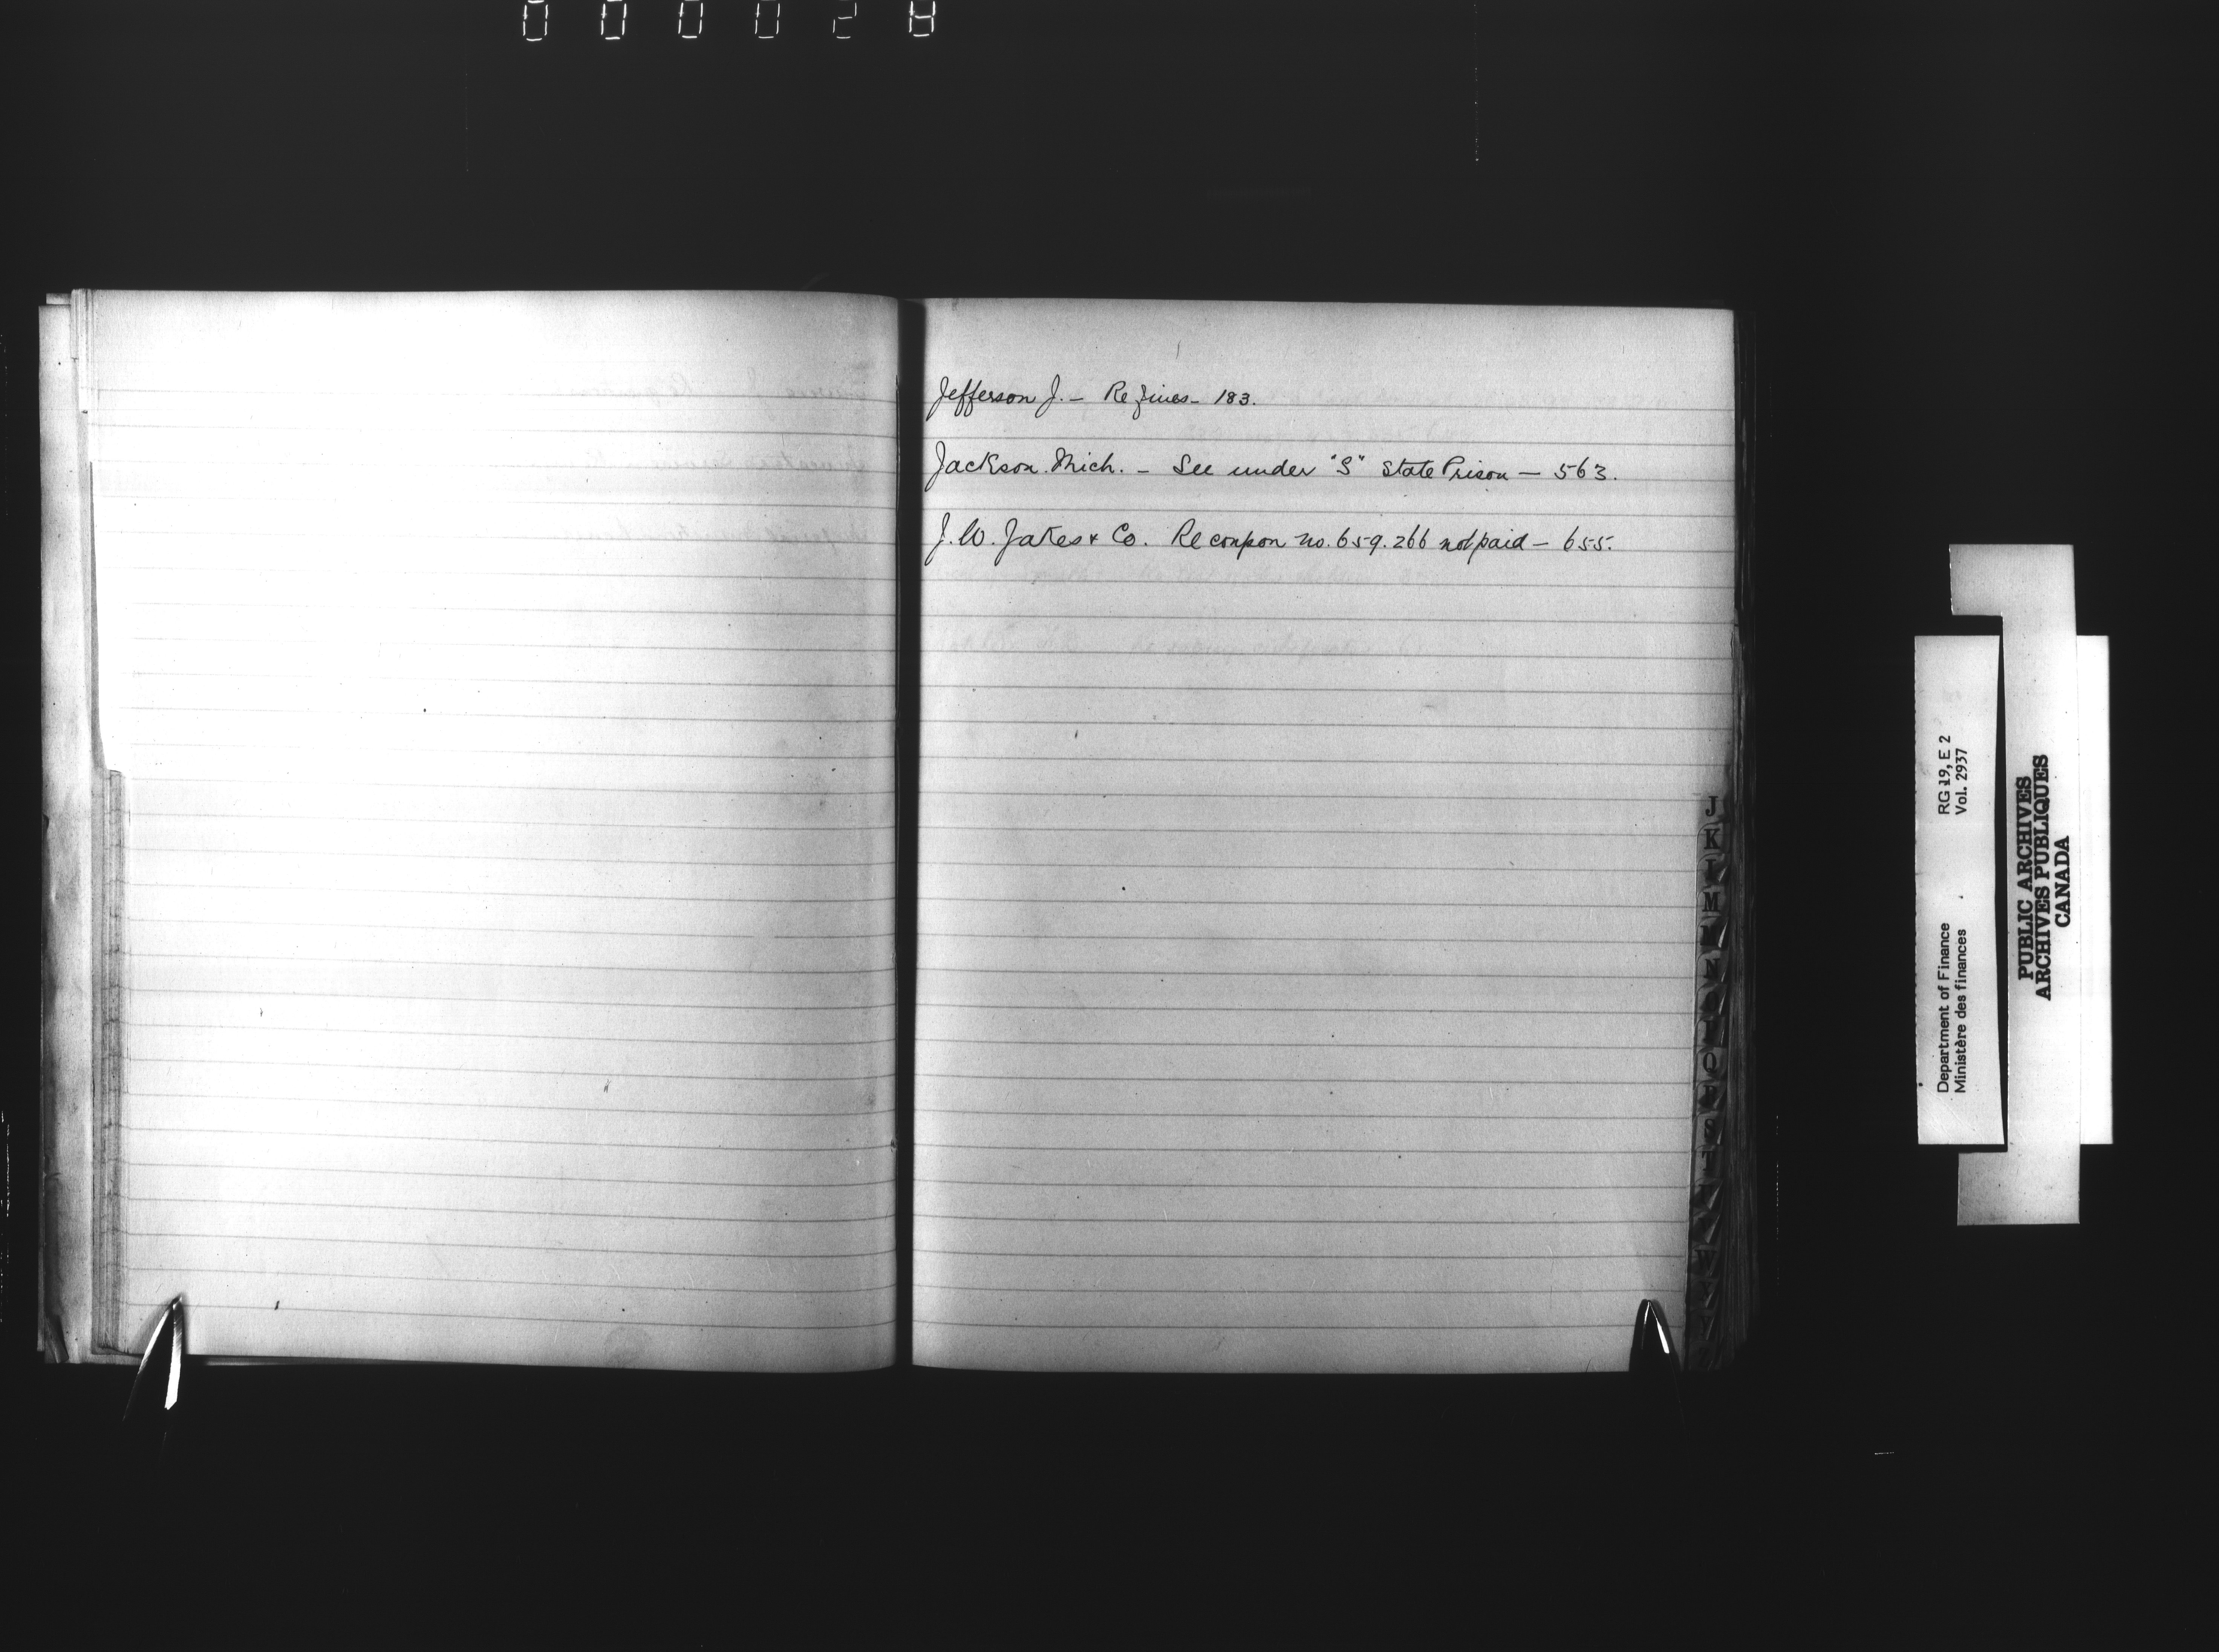 000028
Jefferson J. — Re fines — 183.
Jackson. Mich. — See under "S" State Prison — 563.
J. W. Jakes & Co. Re coupon no. 659.266 not paid — 655.
J
K
L
M
N
O
Q
S
W
RG 19, E 2
Vol. 2937
Department of Finance
Ministère des finances
PUBLIC ARCHIVES
ARCHIVES PUBLIQUES
CANADA